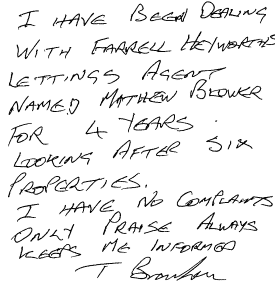 I HAVE BEEN DEALING
WITH FARRELL HEYWORTHS
LETTINGS AGENT
NAMED MATHEW BLOWER
FOR 4 YEARS.
LOOKING AFTER SIX
PROPERTIES.
I HAVE NO COMPLAINTS
ONLY PRAISE ALWAYS
KEEPS ME INFORMED
T